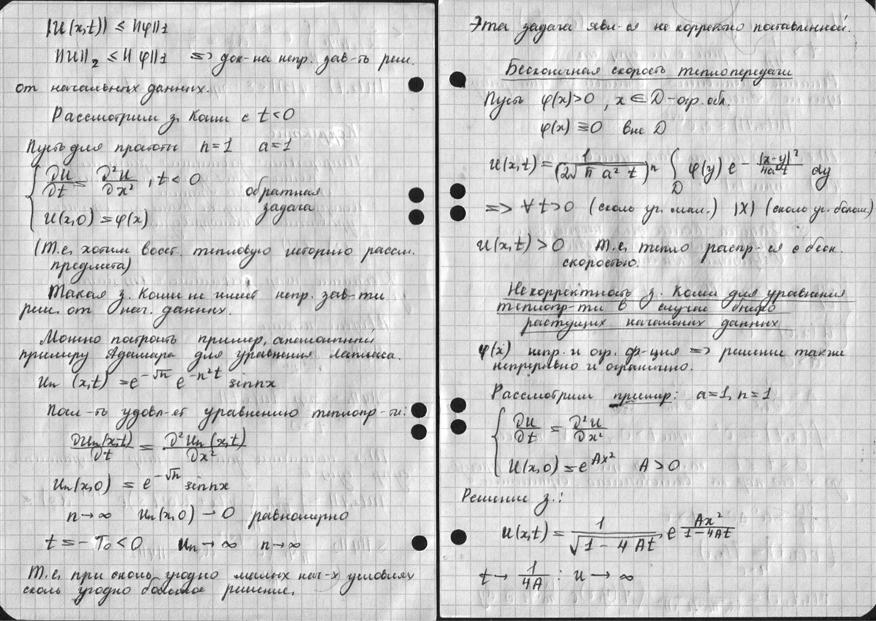 |U(x,t)| ≤ ||φ||₁
||U||₂ ≤ ||φ||₁ ⇒ док-на непр. зав-ть реш.
от начальных данных.
Рассмотрим з. Коши с t<0
Пусть для простоты n=1 a=1
{ ∂U/∂t = ∂²U/∂x² , t<0
U(x,0)=φ(x)
обратная
задача
(т.е. хотим восст. тепловую историю рассм.
предмета)
Такая з. Коши не имеет непр. зав-ти
реш. от нач. данных.
Можно построить пример, аналогичный
примеру Адамара для уравнения Лапласа.
Uₙ (x,t) = e^(-√n) e^(-n²t) sin nx
удовл-ет уравнению теплопр-ти:
∂Uₙ(x,t)/∂t = ∂²Uₙ(x,t)/∂x²
Uₙ(x,0) = e^(-√n) sin nx
n→∞ Uₙ(x,0) → 0 равномерно
t = -T₀ < 0 Uₙ→∞ n→∞
Т.е. при сколь угодно малых нач-х условиях
сколь угодно большое решение.
Эта задача явл-ся не корректно поставленной.
Бесконечная скорость теплопередачи
Пусть φ(x)>0 , x ∈ D - огр. обл.
φ(x) ≡ 0 вне D
U(x,t) = 1/(2√π a² t)ⁿ ∫_D φ(y) e^(-|x-y|²/4a²t) dy
⇒ ∀ t>0 (сколь уг. мал.) |X| (сколь уг. больш)
U(x,t)>0 Т.е. тепло распр-ся с беск.
скоростью.
Некорректность з. Коши для уравнения
теплопр-ти в случае быстро
растущих начальных данных
φ(x) непр. и огр. ф-ция ⇒ решение также
непрерывно и ограничено.
Рассмотрим пример: a=1, n=1
{ ∂U/∂t = ∂²U/∂x²
U(x,0) = e^(Ax²) A>0
Решение з.:
U(x,t) = 1/√(1-4At) e^(Ax²/(1-4At))
t→ 1/4A : u → ∞